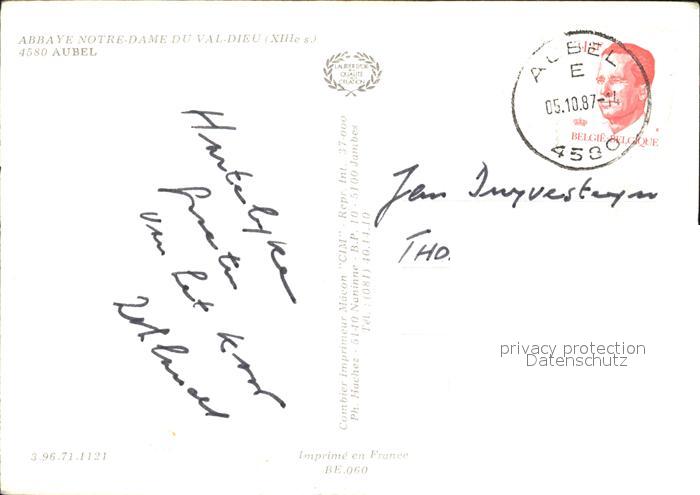 ABBAYE NOTRE-DAME DU VAL-DIEU (XIIIe s.)
4580 AUBEL
LAURIER D'OR
QUALITÉ
CRÉATION
AUBEL
E
05.10.87-14
4580
BELGIË-BELGIQUE
Hartelijke
groeten
van het koor
Jan Duyvesteyn
THO.
Combier Imprimeur Mâcon "CIM" - Repr. Int. 37-000
Ph. Huchez - 5140 Naninne - B.P. 10 - 5100 Jambes
Tél.: (081) 40.14.10
privacy protection
Datenschutz
3.96.71.1121
Imprimé en France
BE.060